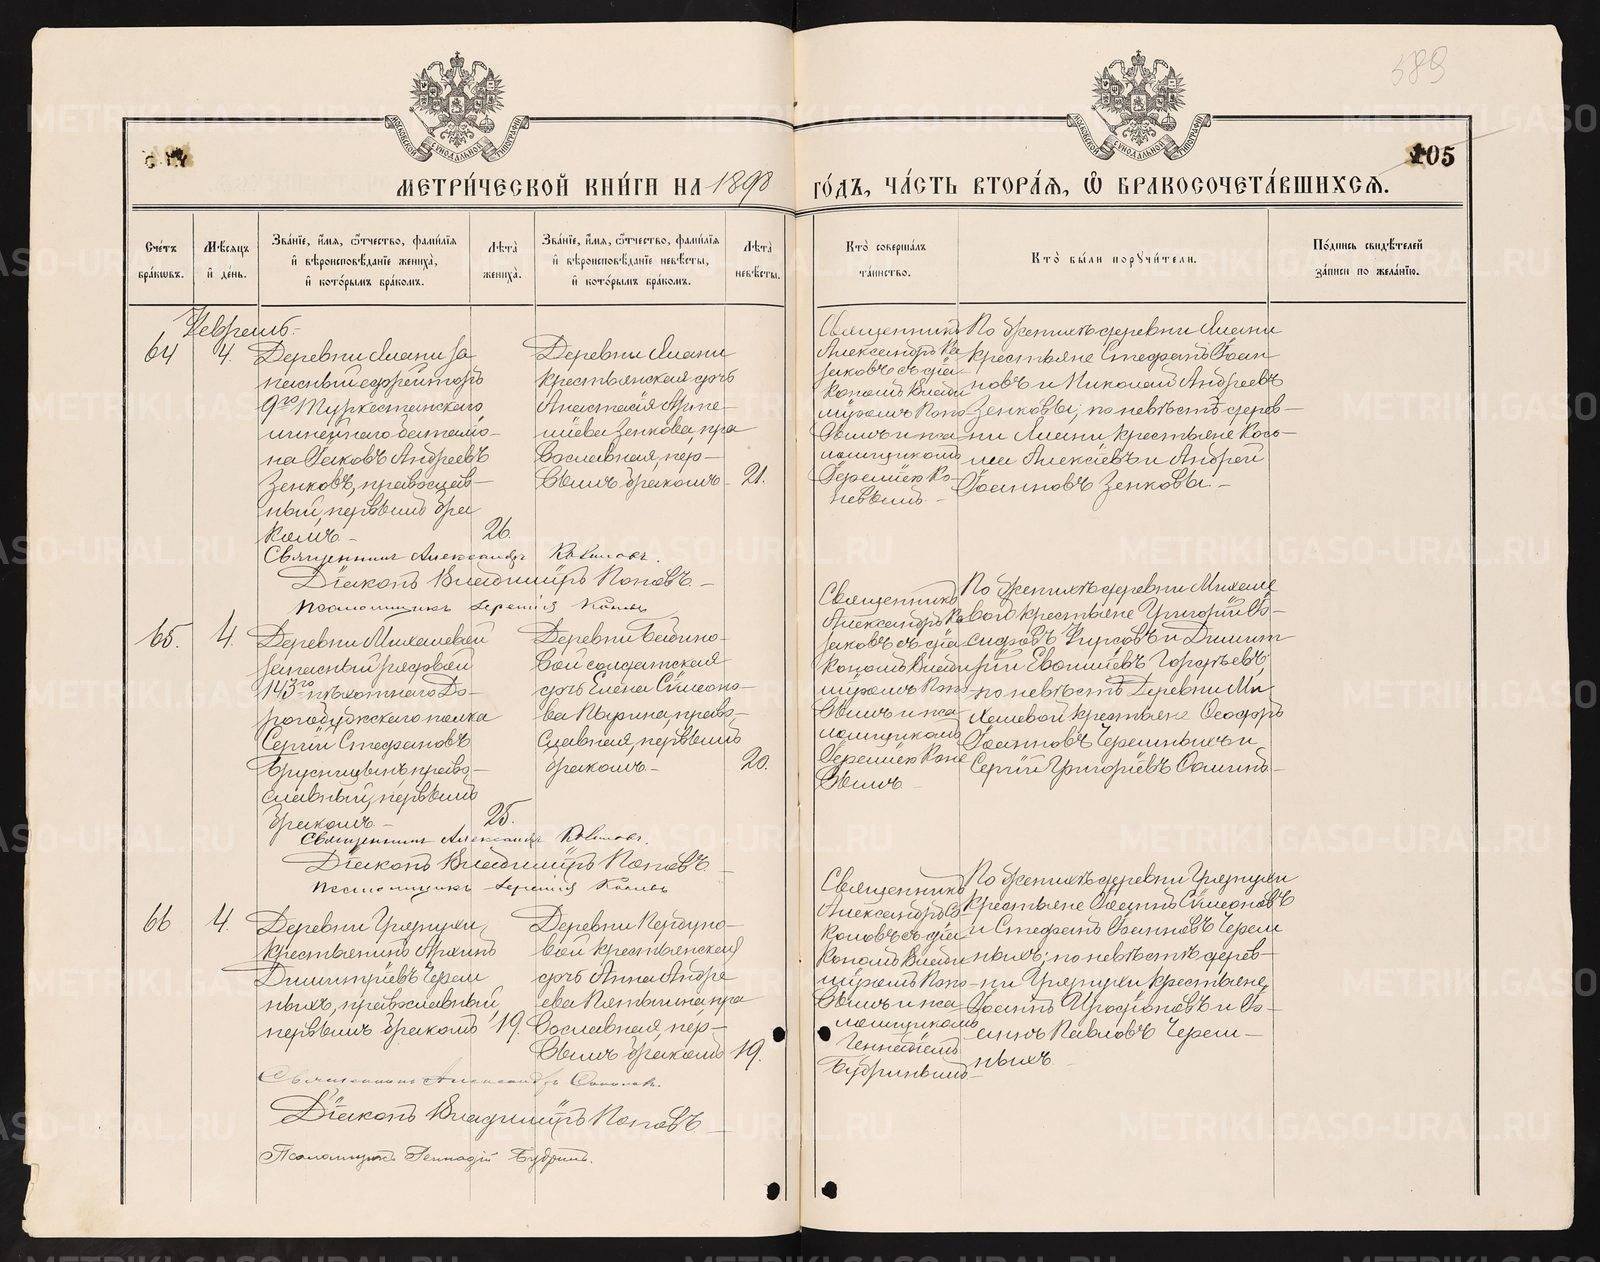 589
105
МЕТРИ́ЧЕСКОЙ КНИ́ГИ НА 1898 ГО́ДЪ, ЧА́СТЬ ВТОРА́Ѧ, Ѿ БРАКОСОЧЕТА́ВШИХСѦ.
Сче́тъ бра́ковъ.
Мѣ́сяцъ и́ де́нь.
Зва́нїе, и́мя, ѻ́тчество, фами́лїя и́ вѣроисповѣ́данїе жениха̀, и́ кото́рымъ бра́комъ.
Лѣ́та жениха̀.
Зва́нїе, и́мя, ѻ́тчество, фами́лїя и́ вѣроисповѣ́данїе невѣ́сты, и́ кото́рымъ бра́комъ.
Лѣ́та невѣ́сты.
Кто̀ соверша́лъ та́инство.
Кто̀ бы́ли порꙋчи́тели.
По́дпись свидѣ́телей за́писи по жела́нїю.
Февраль.
64
4.
Деревни Ялани за
пасный ефрейторъ
9го Туркестанскаго
линейнаго баталіо-
на Іаковъ Андреевъ
Зенковъ, православ-
ный, первымъ бра
комъ -
26.
Деревни Ялани
крестьянская дочь
Анастасія Арте-
міева Зенкова, пра
вославная, пер-
вымъ бракомъ -
21.
Священникъ
Александръ Ка
заковъ съ діа
кономъ Влади
міромъ Попо
вымъ и пса
ломщикомъ
Іереміею Ко
невымъ -
По женихѣ деревни Ялани
крестьяне Стефанъ Іоан
новъ и Николай Андреевъ
Зенковы; по невѣстѣ дерев-
ни Ялани крестьяне Козь-
ма Алексіевъ и Андрей
Іоанновъ Зенковы. -
Священникъ Александръ
Діаконъ Владиміръ Поповъ -
Псаломщикъ Іеремія
65.
4.
Деревни Михалевой
запасный рядовой
143го пѣхотнаго До-
рогобужскаго полка
Сергій Стефановъ
Брусницынъ, право-
славный, первымъ
бракомъ -
25.
Деревни Бабино-
вой солдатская
дочь Елена Сѵмеоно-
ва Пырина, право-
славная, первымъ
бракомъ -
20.
Священникъ
Александръ Ка
заковъ съ діа
кономъ Влади
міромъ Попо
вымъ и пса
ломщикомъ
Іереміею Коне
вымъ
По женихѣ деревни Михале
вой крестьяне Григорій
и Димит
рій Гордѣевъ
по невѣстѣ Деревни Ми
халевой крестьяне Ѳеодоръ
Іоанновъ Черемныхъ и
Сергій Григоріевъ
Священникъ Александръ
Діаконъ Владиміръ Поповъ -
Псаломщикъ Іеремія
66
4.
Деревни
крестьянинъ Архипъ
Димитріевъ Черем
ныхъ, православный,
первымъ бракомъ
19.
Деревни
крестьянская
дочь Анна Андре
ева Пятыгина, пра
вославная, пер-
вымъ бракомъ
19.
Священникъ
Александръ Со
коловъ съ діа
кономъ Влади
міромъ Попо
вымъ и пса
ломщикомъ
Геннадіемъ
Будринымъ -
По женихѣ деревни
крестьяне Іоаннъ Сѵмеоновъ
и Стефанъ Іоанновъ Черем
ныхъ; по невѣстѣ дерев-
ни крестьяне
Іоаннъ и
Павловъ Черем-
ныхъ
Священникъ Александръ Соколовъ.
Діаконъ Владиміръ Поповъ -
Псаломщикъ Геннадій Будринъ.
METRIKI.GASO-URAL.RU